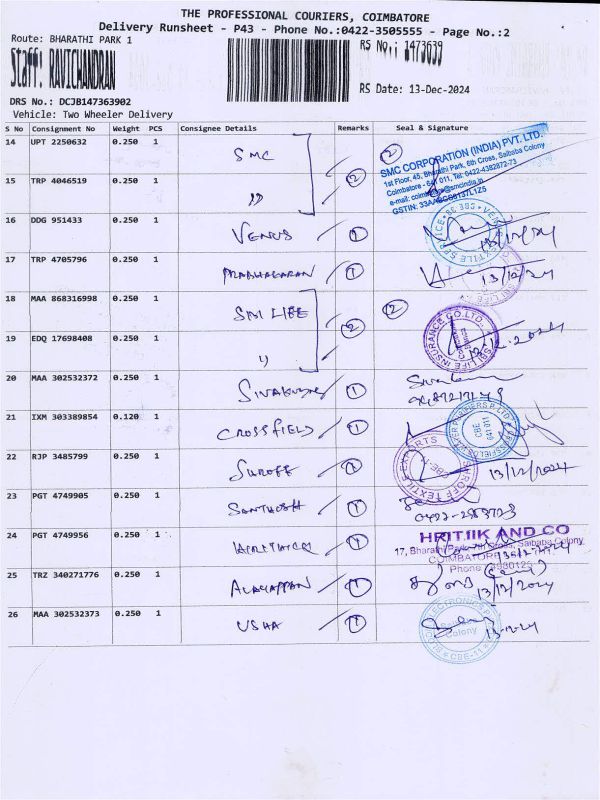 THE PROFESSIONAL COURIERS, COIMBATORE
Delivery Runsheet - P43 - Phone No.:0422-3505555 - Page No.:2
Route: BHARATHI PARK 1
RS No.: 1473639
Staff: RAVICHANDRAN
RS Date: 13-Dec-2024
DRS No.: DCJB147363902
Vehicle: Two Wheeler Delivery
S No Consignment No Weight PCS Consignee Details Remarks Seal & Signature
14 UPT 2250632 0.250 1 SMC 2 2
SMC CORPORATION (INDIA) PVT. LTD.
1st Floor, 45, Bharathi Park, 6th Cross, Saibaba Colony
Coimbatore - 641 011, Tel: 0422-4382872-73
15 TRP 4046519 0.250 1 "
16 DDG 951433 0.250 1 VENUS 1 13/12/24
17 TRP 4705796 0.250 1 PRABHAKARAN 1 13/12/24
18 MAA 868316998 0.250 1 SBI LIFE 2 2
SBI LIFE INSURANCE CO. LTD.
19 EDQ 17698408 0.250 1 "
20 MAA 302532372 0.250 1 SIVAKUMAR 1
21 IXM 303389854 0.120 1 CROSSFIELD 1
22 RJP 3485799 0.250 1 SHROFF 1 13/12/2024
SHROFF TEXTILE EXPORTS
23 PGT 4749905 0.250 1 SANTHOSH 1
24 PGT 4749956 0.250 1 HRITHICK 1
HRITIIK AND CO
17, Bharathi Park, 7th Cross, Saibaba Colony
25 TRZ 340271776 0.250 1 ALAGAPPAN 1 13/12/2024
26 MAA 302532373 0.250 1 USHA 1 13-12-24